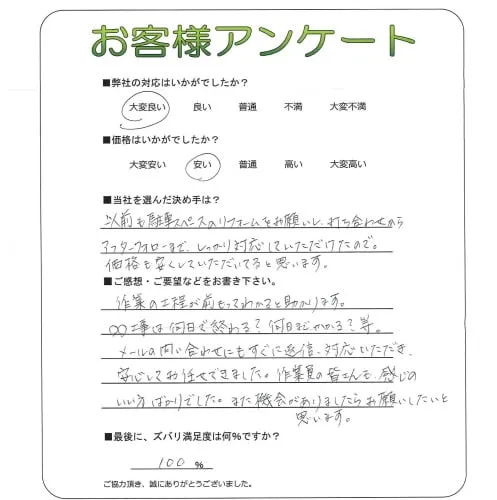 お客様アンケート
■弊社の対応はいかがでしたか？
大変良い 良い 普通 不満 大変不満
■価格はいかがでしたか？
大変安い 安い 普通 高い 大変高い
■当社を選んだ決め手は？
以前も駐車スペースのリフォームをお願いし、打ち合わせから
アフターフォローまで、しっかり対応していただけたので。
価格も安くしていただいてると思います。
■ご感想・ご要望などをお書き下さい。
作業の工程が前もってわかると助かります。
○○工事は何日で終わる？何日までかかる？等。
メールの問い合わせにもすぐに返信、対応いただき、
安心してお任せできました。作業員の皆さんも、感じの
いい方ばかりでした。また機会がありましたらお願いしたいと
思います。
■最後に、ズバリ満足度は何％ですか？
100 ％
ご協力頂き、誠にありがとうございました。